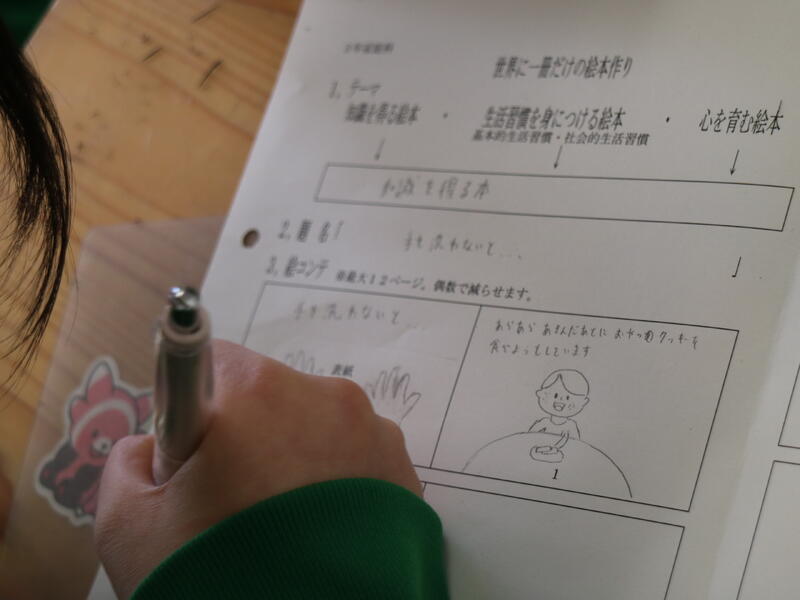 世界に一冊だけの絵本作り
1, テーマ
知識を得る絵本 ・ 生活習慣を身につける絵本 ・ 心を育む絵本
基本的生活習慣・社会的生活習慣
知識を得る本
2, 題名「 手を洗わないと... 」
3, 絵コンテ ※最大12ページ。偶数で減らせます。
手を洗わないと...
表紙
おやつの クッキーを
食べようとしています
1